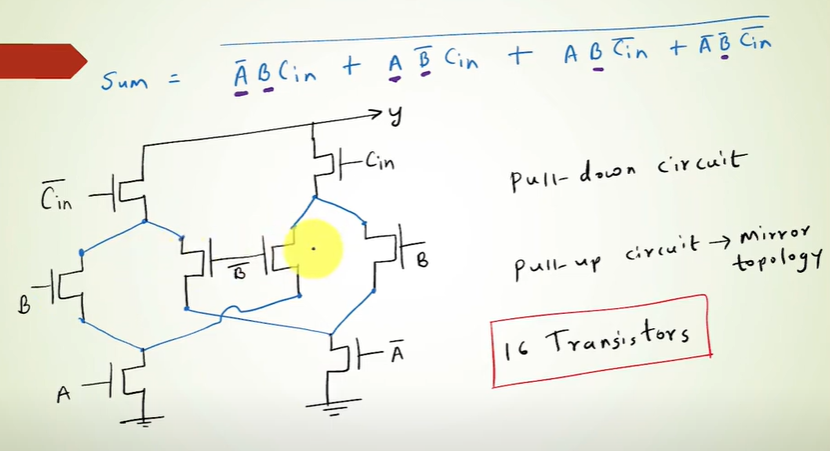 Sum = A̅ B Cin + A B̅ Cin + A B C̅in + A̅ B̅ C̅in
y
C̅in
Cin
B
B̅
B
A
A̅
Pull-down circuit
Pull-up circuit → Mirror
topology
16 Transistors